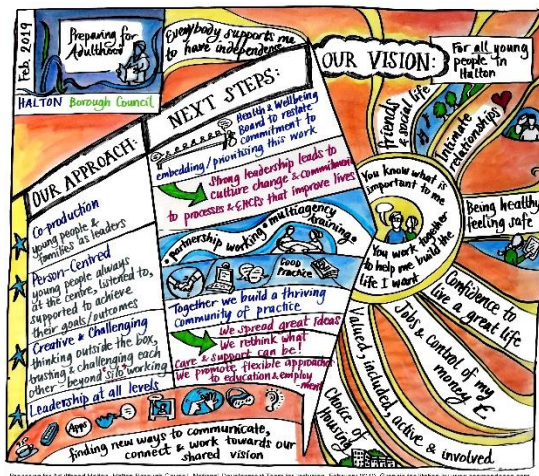 Feb. 2019
Preparing for
Adulthood
HALTON Borough Council
Everybody supports me
to have independence
OUR VISION:
For all young
people in
Halton
OUR APPROACH:
Co-production
young people &
families as leaders
Person-Centred
young people always
at the centre, listened to,
supported to achieve
their goals/outcomes
Creative & Challenging
thinking outside the box,
trusting & challenging each
other - beyond silo working
Leadership at all levels
NEXT STEPS:
Health & Wellbeing
Board to restate
commitment to
embedding/prioritising this work
Strong leadership leads to
culture change & commitment
to processes & EHCPs that improve lives
• partnership working • multiagency
training •
GOOD
PRACTICE
Together we build a thriving
community of practice
We spread great ideas
We rethink what
care & support can be!
We promote flexible approaches
to education & employ
ment
friends
& social life
Intimate
relationships
You know what is
important to me
You work together
to help me build the
life I want
Being healthy
feeling safe
Confidence to
live a great life
Jobs & control of my
money £
Valued, included, active & involved
Choice of
housing
Apps
finding new ways to communicate,
connect & work towards our
shared vision